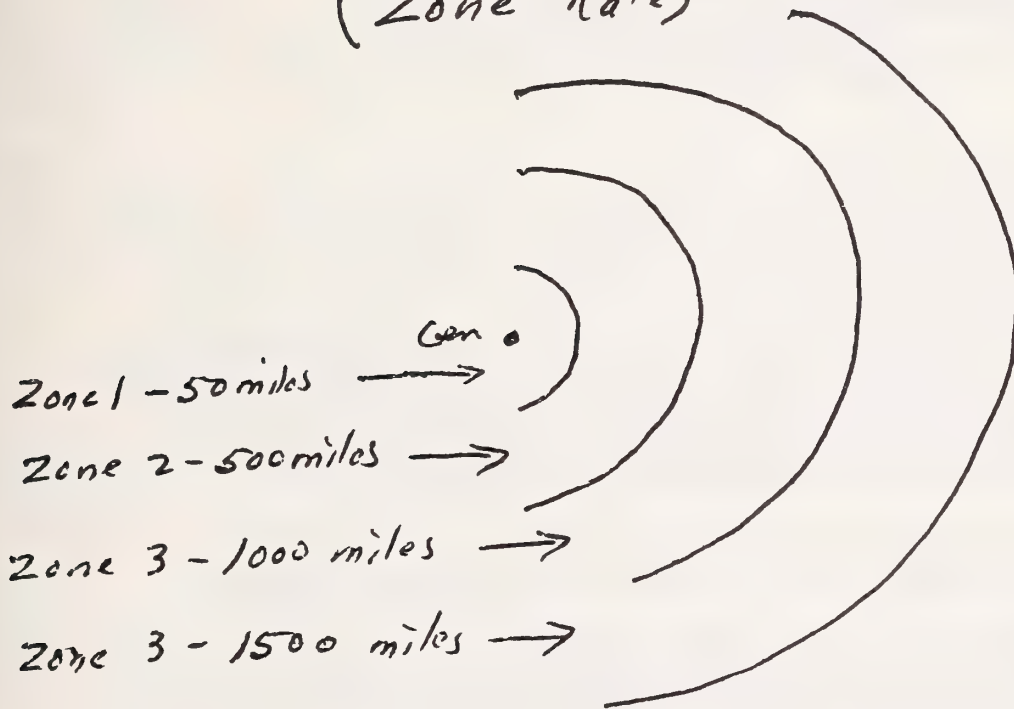 (Zone Rate)
Gen.
Zone 1 - 50 miles
Zone 2 - 500 miles
Zone 3 - 1000 miles
Zone 3 - 1500 miles